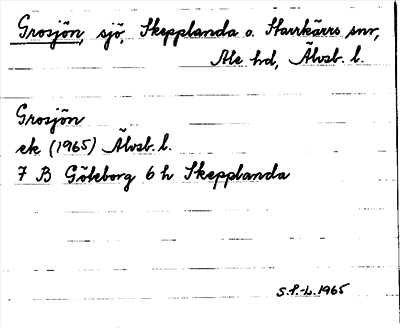 Grosjön, sjö, Skepplanda o. Starrkärrs snr,
Ale hd, Älvsb. l.
Grosjön
ek (1965) Älvsb. l.
7 B Göteborg 6 h Skepplanda
S.P.-L. 1965